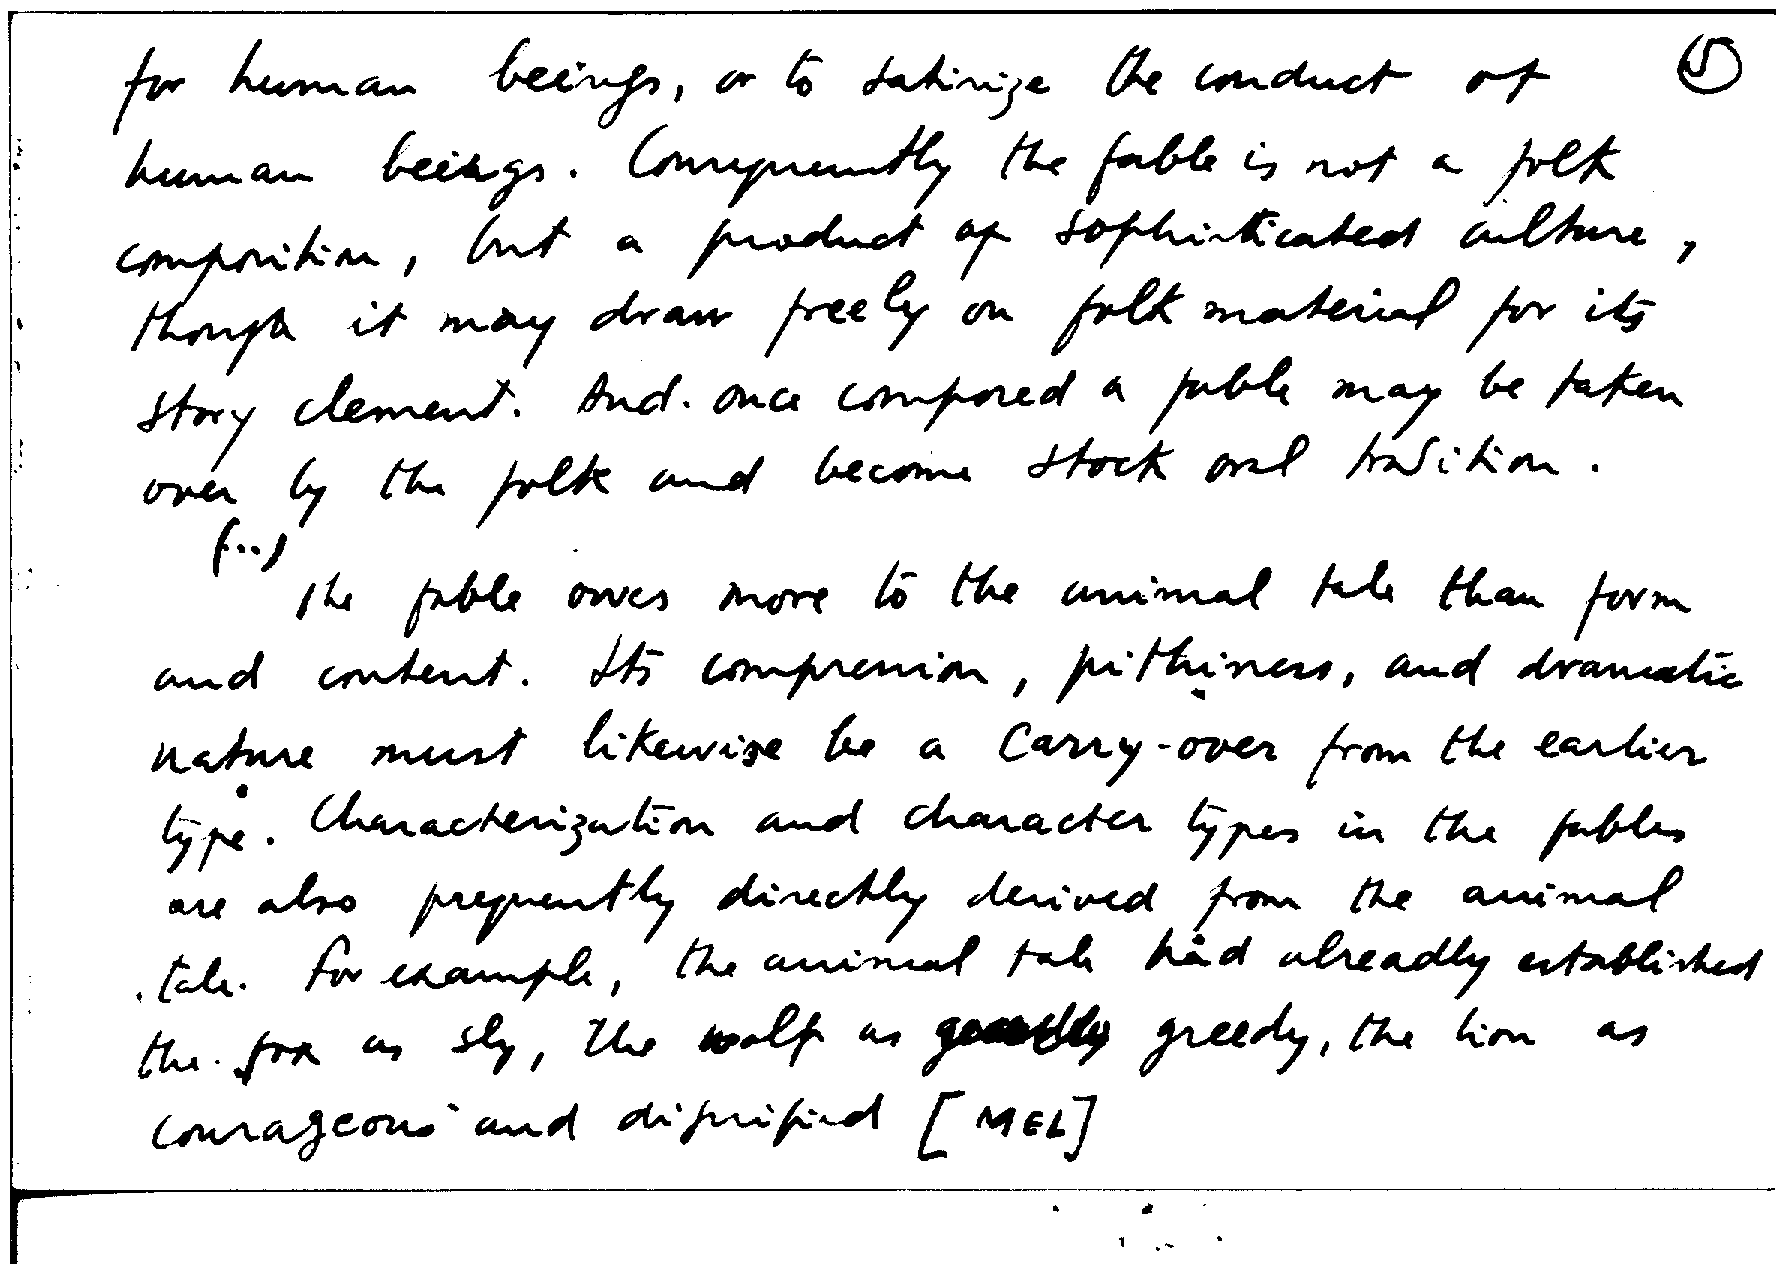 for human beings, or to satirize the conduct of 5
human beings. Consequently the fable is not a folk
composition, but a product of sophisticated culture,
though it may draw freely on folk material for its
story element. And once composed a fable may be taken
over by the folk and become stock oral tradition.
(...)
The fable owes more to the animal tale than form
and content. Its compression, pithiness, and dramatic
nature must likewise be a carry-over from the earlier
type. Characterization and character types in the fables
are also frequently directly derived from the animal
tale. For example, the animal tale had alreadly established
the fox as sly, the wolf as greedy, the lion as
courageous and dignified [MEL]